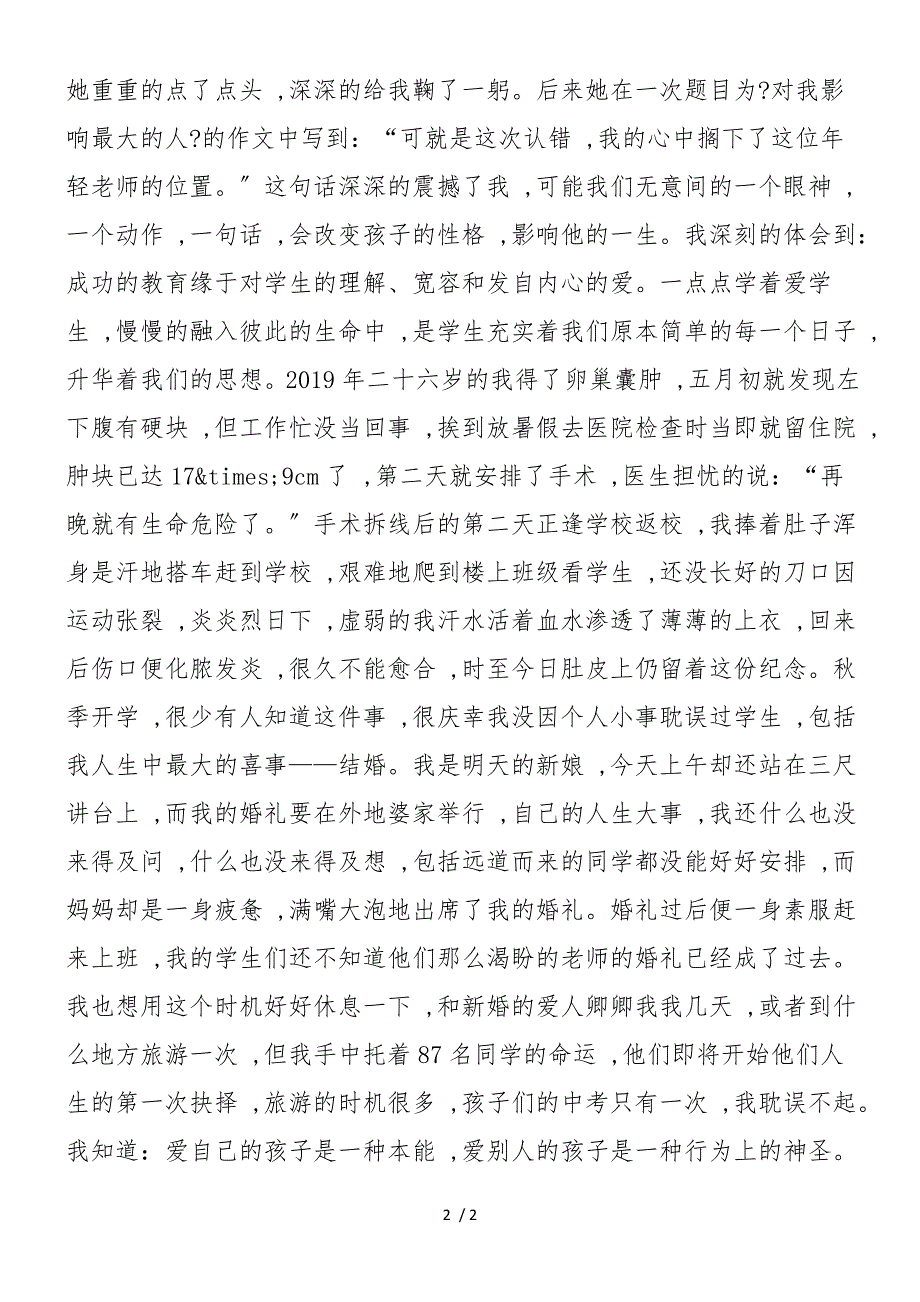 她重重的点了点头 ,深深的给我鞠了一躬。后来她在一次题目为?对我影
响最大的人?的作文中写到：“可就是这次认错 ,我的心中搁下了这位年
轻老师的位置。〞这句话深深的震撼了我 ,可能我们无意间的一个眼神 ,
一个动作 ,一句话 ,会改变孩子的性格 ,影响他的一生。我深刻的体会到：
成功的教育缘于对学生的理解、宽容和发自内心的爱。一点点学着爱学
生 ,慢慢的融入彼此的生命中 ,是学生充实着我们原本简单的每一个日子 ,
升华着我们的思想。2019 年二十六岁的我得了卵巢囊肿 ,五月初就发现左
下腹有硬块 ,但工作忙没当回事 ,挨到放暑假去医院检查时当即就留住院 ,
肿块已达 17&times;9cm 了 ,第二天就安排了手术 ,医生担忧的说：“再
晚就有生命危险了。〞手术拆线后的第二天正逢学校返校 ,我捧着肚子浑
身是汗地搭车赶到学校 ,艰难地爬到楼上班级看学生 ,还没长好的刀口因
运动张裂 ,炎炎烈日下 ,虚弱的我汗水活着血水渗透了薄薄的上衣 ,回来
后伤口便化脓发炎 ,很久不能愈合 ,时至今日肚皮上仍留着这份纪念。秋
季开学 ,很少有人知道这件事 ,很庆幸我没因个人小事耽误过学生 ,包括
我人生中最大的喜事——结婚。我是明天的新娘 ,今天上午却还站在三尺
讲台上 ,而我的婚礼要在外地婆家举行 ,自己的人生大事 ,我还什么也没
来得及问 ,什么也没来得及想 ,包括远道而来的同学都没能好好安排 ,而
妈妈却是一身疲惫 ,满嘴大泡地出席了我的婚礼。婚礼过后便一身素服赶
来上班 ,我的学生们还不知道他们那么渴盼的老师的婚礼已经成了过去。
我也想用这个时机好好休息一下 ,和新婚的爱人卿卿我我几天 ,或者到什
么地方旅游一次 ,但我手中托着 87 名同学的命运 ,他们即将开始他们人
生的第一次抉择 ,旅游的时机很多 ,孩子们的中考只有一次 ,我耽误不起。
我知道：爱自己的孩子是一种本能 ,爱别人的孩子是一种行为上的神圣。
2 / 2